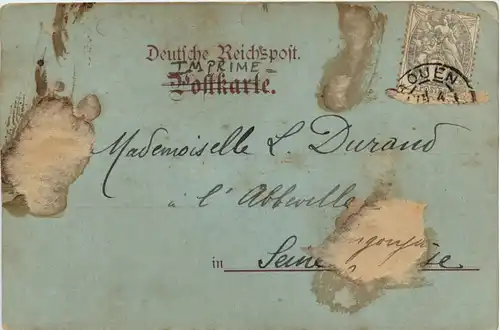 Deutsche Reichspost.
IMPRIMÉ
Postkarte.
ROUEN
Mademoiselle L. Durand
à l'Abbeville
in Seine